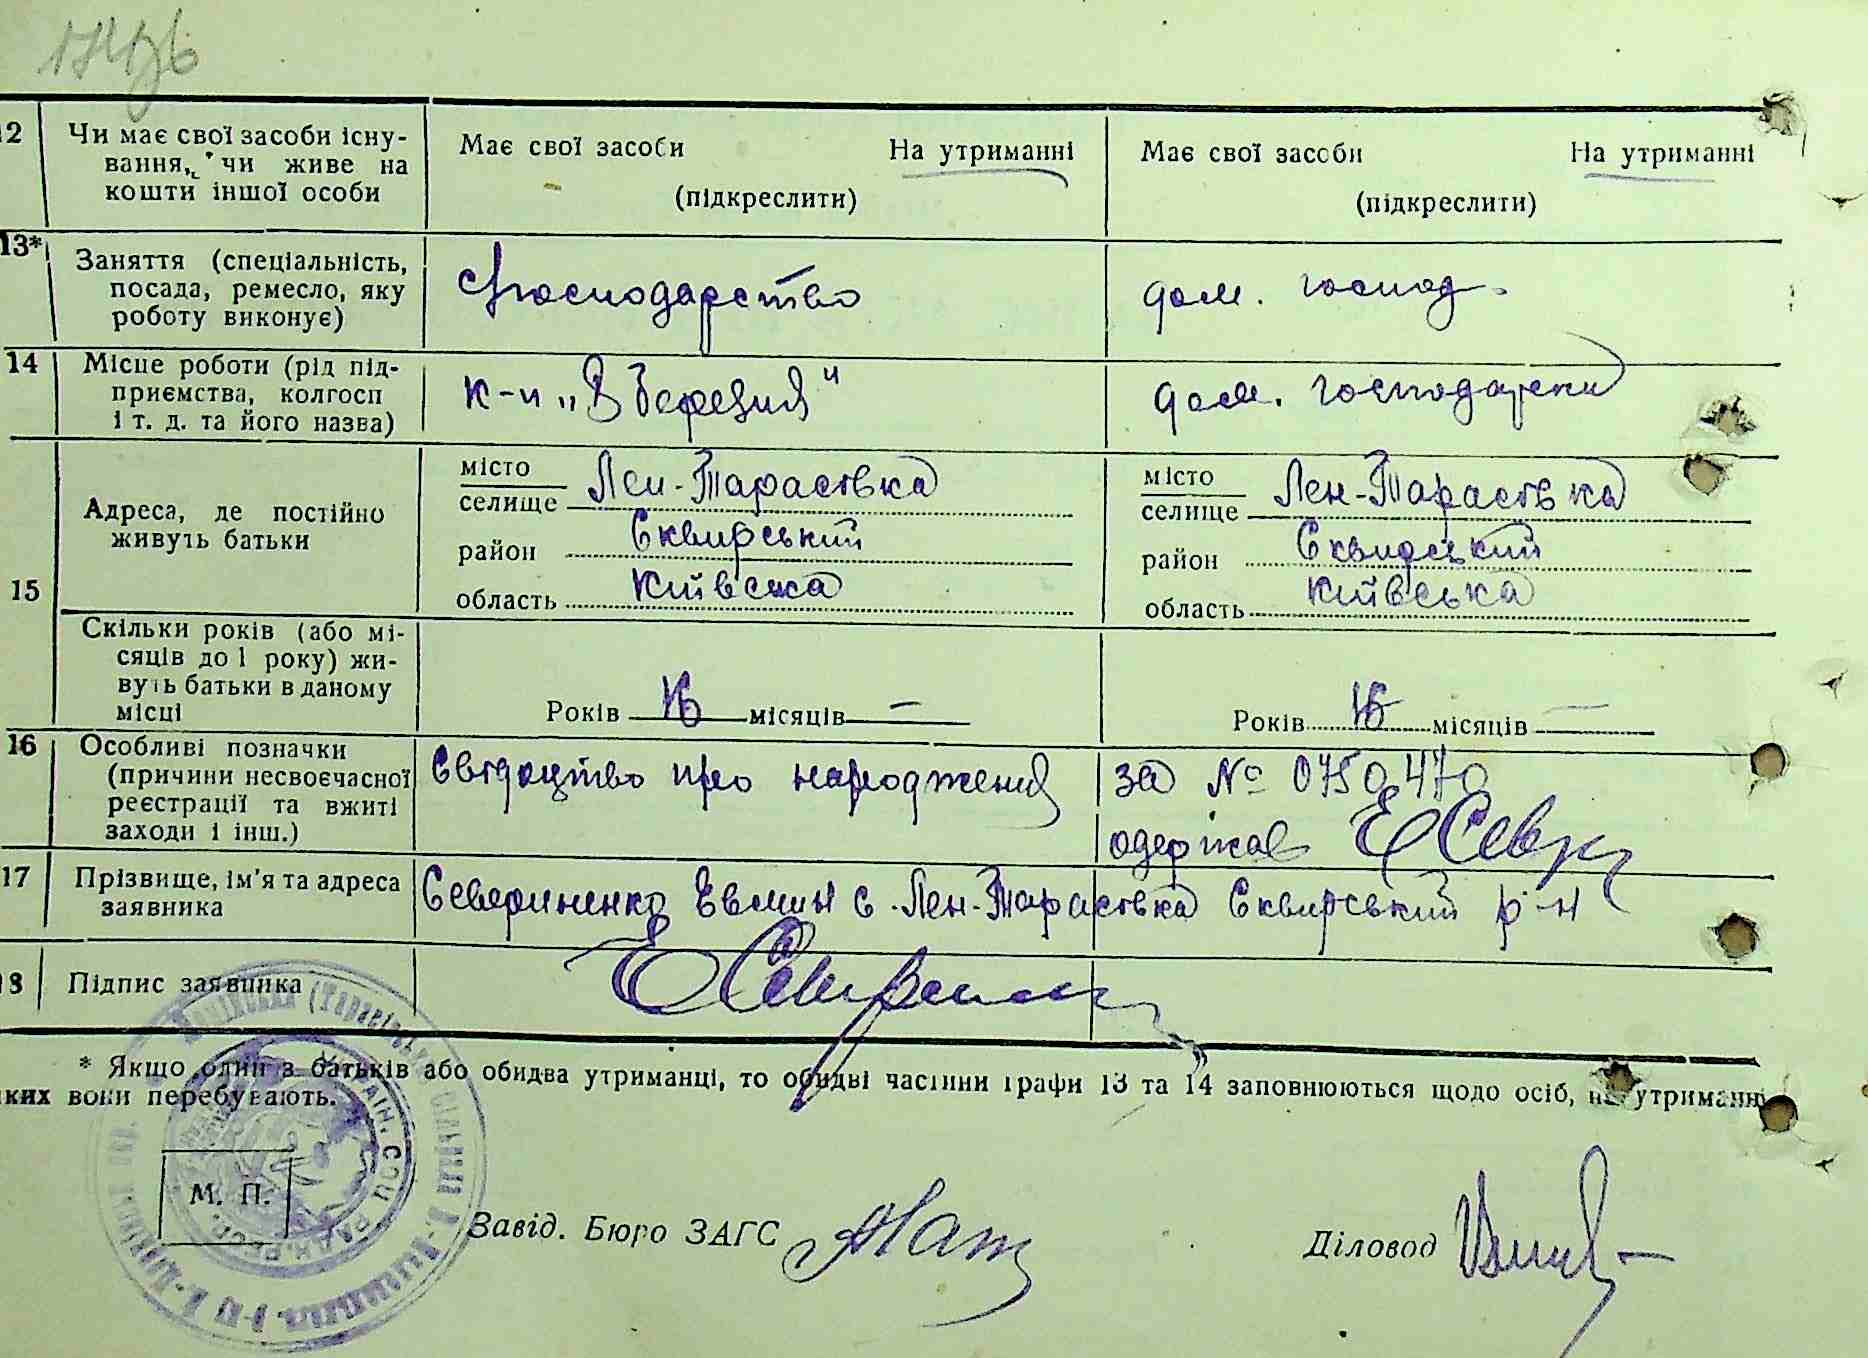 12 Чи має свої засоби існу-
вання, чи живе на
кошти іншої особи
Має свої засоби На утриманні
(підкреслити)
Має свої засоби На утриманні
(підкреслити)
13* Заняття (спеціальність,
посада, ремесло, яку
роботу виконує)
сг господарство
дом. господ.
14 Місце роботи (рід під-
приємства, колгосп
і т. д. та його назва)
к-п „8 березня"
дом. господарка
15
Адреса, де постійно
живуть батьки
місто
селище Лен-Тарасівка
район Сквирський
область Київська
місто
селище Лен-Тарасівка
район Сквирський
область Київська
Скільки років (або мі-
сяців до 1 року) жи-
вуть батьки в даному
місці
Років місяців —
Років місяців —
16 Особливі позначки
(причини несвоєчасної
реєстрації та вжиті
заходи і інш.)
Свідоцтво про народження за № 0750470
одержав
17 Прізвище, ім'я та адреса
заявника
Севериненко Евмин с. Лен-Тарасівка Сквирський р-н
18 Підпис заявника
* Якщо один з батьків або обидва утриманці, то обидві частини графи 13 та 14 заповнюються щодо осіб, на утриманні
яких вони перебувають.
М. П.
Завід. Бюро ЗАГС
Діловод